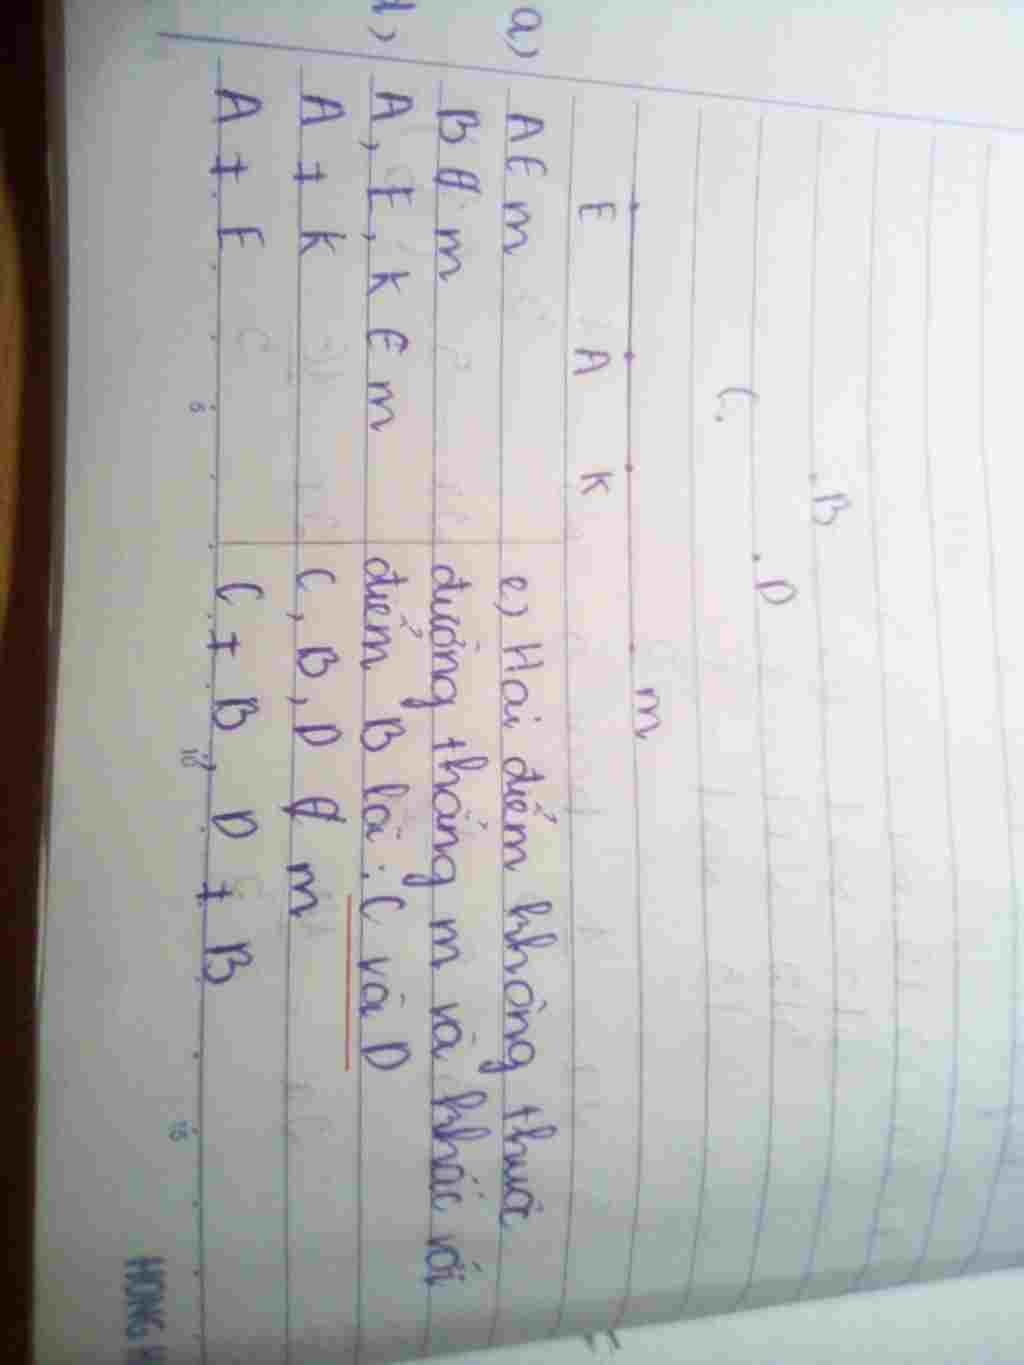 a)
.B
C.
.D
m
E A K
A ∈ m
B ∉ m
A, E, K ∈ m
A ≠ K
A ≠ E
e) Hai điểm không thuộc
đường thẳng m và khác với
điểm B là: C và D
C, B, D ∉ m
C ≠ B D ≠ B
5 10 15
HONG H